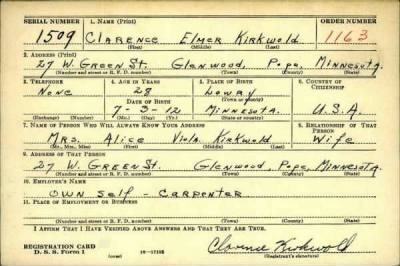 SERIAL NUMBER 1. NAME (Print) ORDER NUMBER
1509 Clarence Elmer Kirkwold 1163
(First) (Middle) (Last)
2. ADDRESS (Print)
27 W. Green St. Glenwood, Pope, Minnesota.
(Number and street or R. F. D. number) (Town) (County) (State)
3. TELEPHONE 4. AGE IN YEARS 5. PLACE OF BIRTH 6. COUNTRY OF CITIZENSHIP
None 28 Lowry
DATE OF BIRTH (Town or county)
7-3-12 Minnesota. U.S.A
(Exchange) (Number) (Mo.) (Day) (Yr.) (State or country)
7. NAME OF PERSON WHO WILL ALWAYS KNOW YOUR ADDRESS 8. RELATIONSHIP OF THAT PERSON
Mrs. Alice Viola Kirkwold Wife
(Mr., Mrs., Miss) (First) (Middle) (Last)
9. ADDRESS OF THAT PERSON
27 W. Green St. Glenwood, Pope, Minnesota.
(Number and street or R. F. D. number) (Town) (County) (State)
10. EMPLOYER'S NAME
Own Self - Carpenter
11. PLACE OF EMPLOYMENT OR BUSINESS
(Number and street or R. F. D. number) (Town) (County) (State)
I AFFIRM THAT I HAVE VERIFIED ABOVE ANSWERS AND THAT THEY ARE TRUE.
REGISTRATION CARD
D. S. S. Form 1 (over) Clarence Kirkwold
(Registrant's signature)